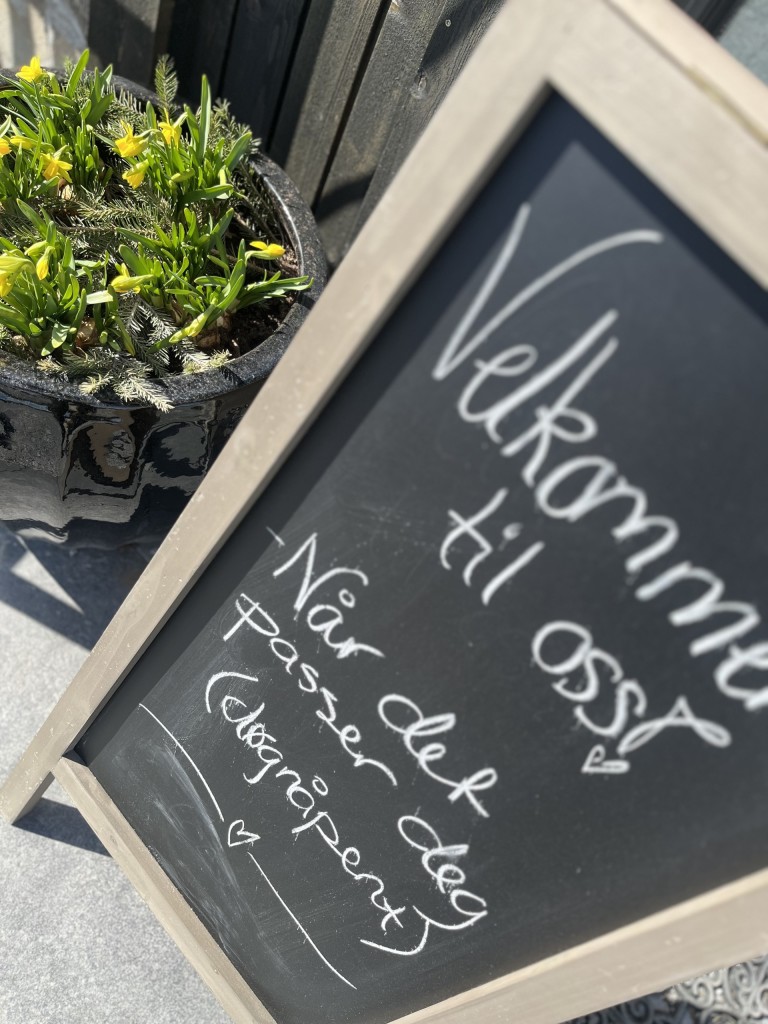 Velkommen
til oss!
- Når det
passer deg
(døgnåpent)